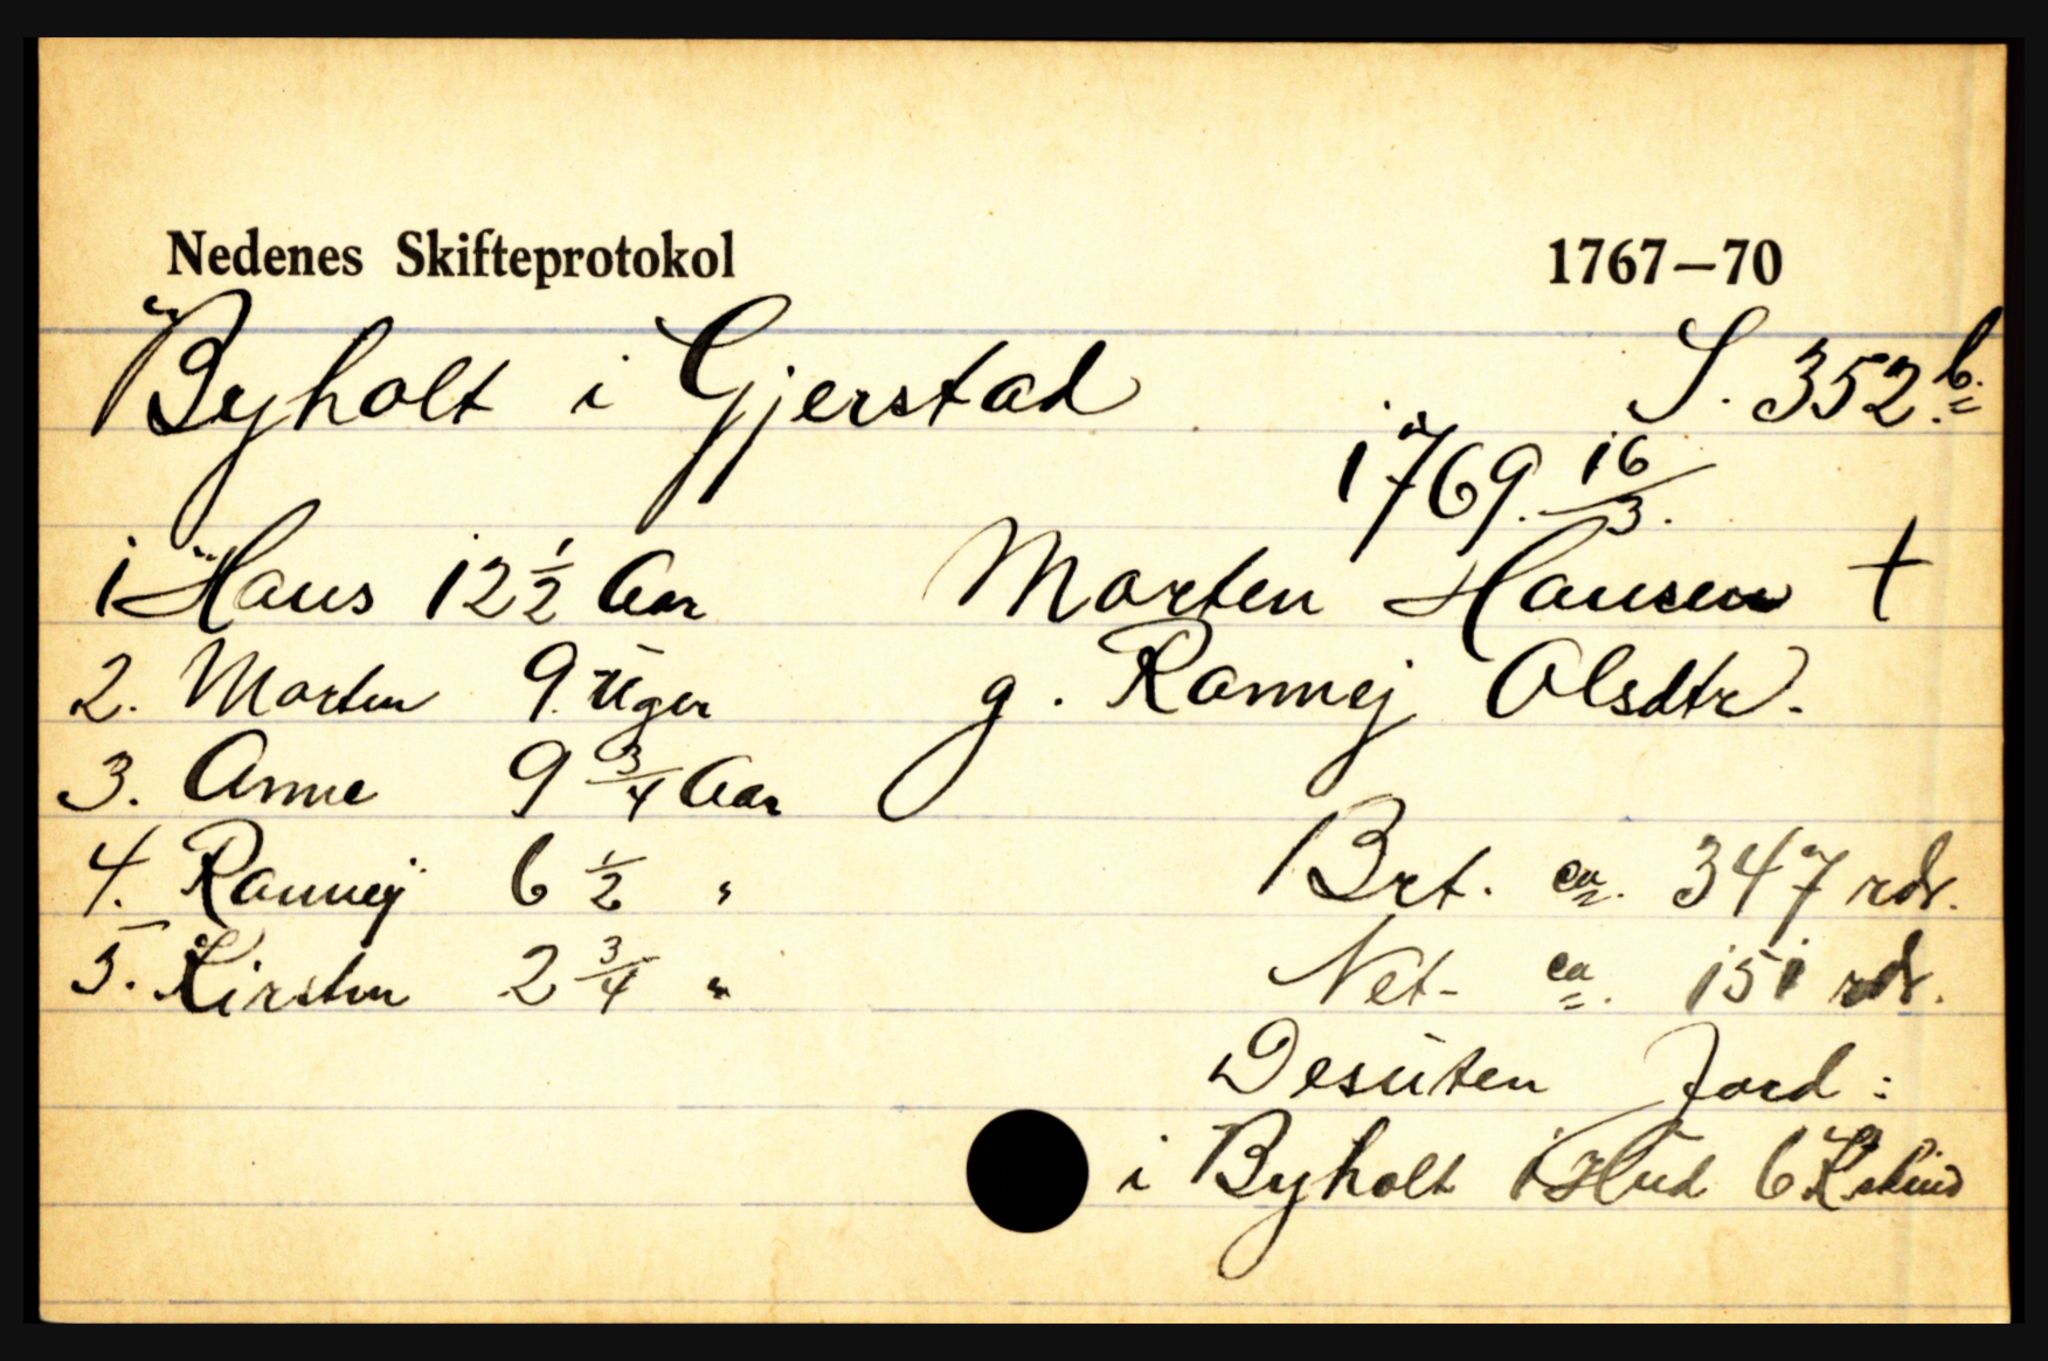 Nedenes Skifteprotokol 1767–70
Byholt i Gjerstad S. 352 b.
1769. 16/3.
1 Hans 12 1/2 Aar Morten Hansen †
2. Morten 9 Uger g. Rannej Olsdtr.
3. Anne 9 3/4 Aar
4. Rannej 6 1/2 " Brt. ca. 347 rdr.
5. Kirsten 2 3/4 " Net- ca. 151 rdr.
Desuten Jord:
i Byholt 1 Hud 6 Kskind